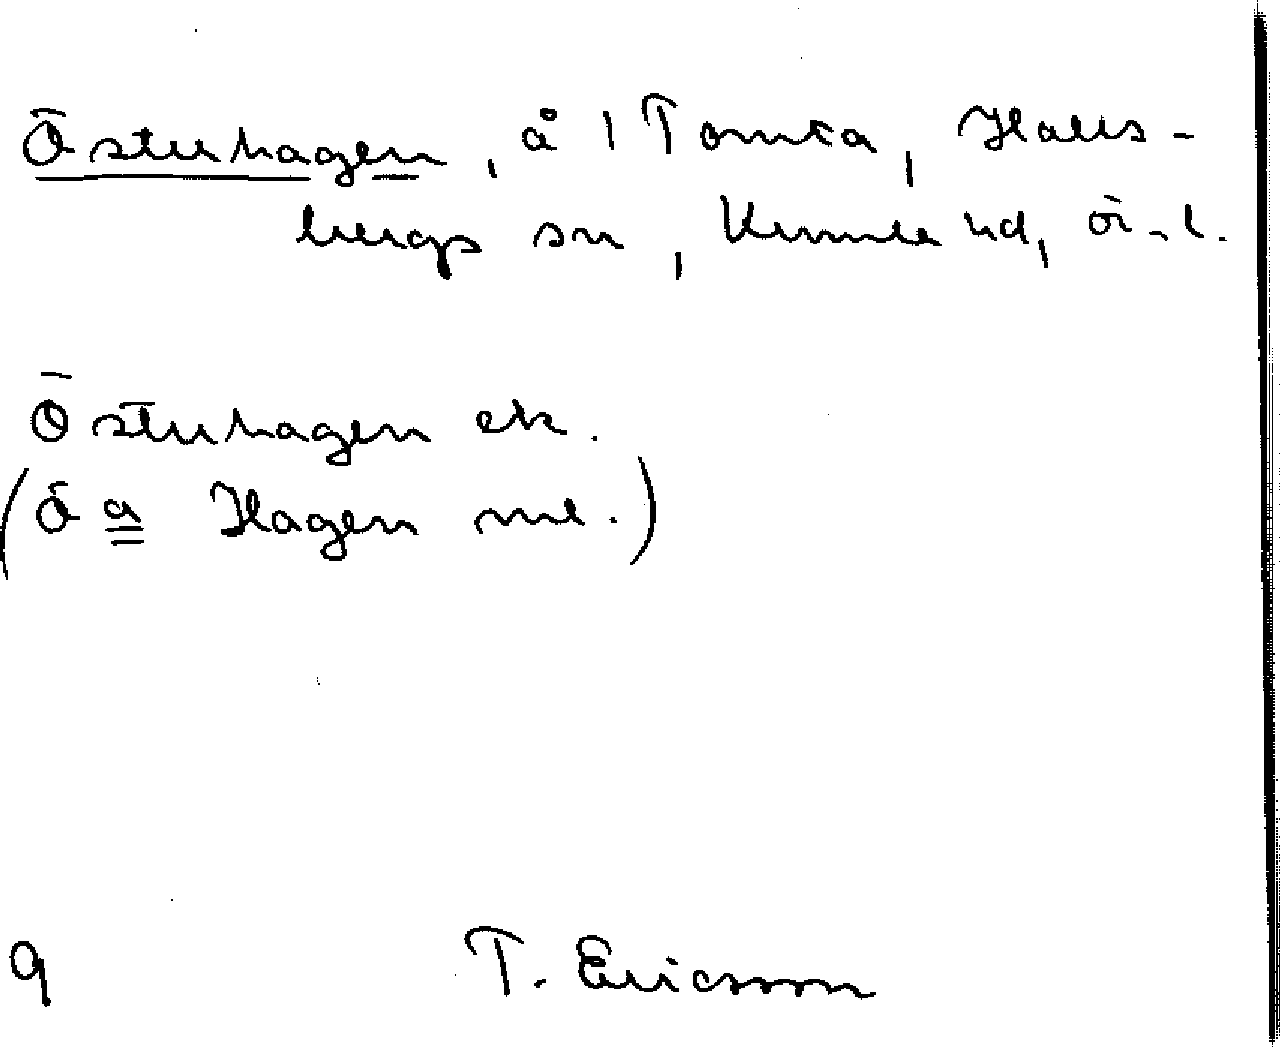 Österhagen, å 1 Tomta, Halls-
bergs sn, Kumla hd, ö-l.
Österhagen ek.
(Ö a Hagen ml.)
9 T. Ericsson